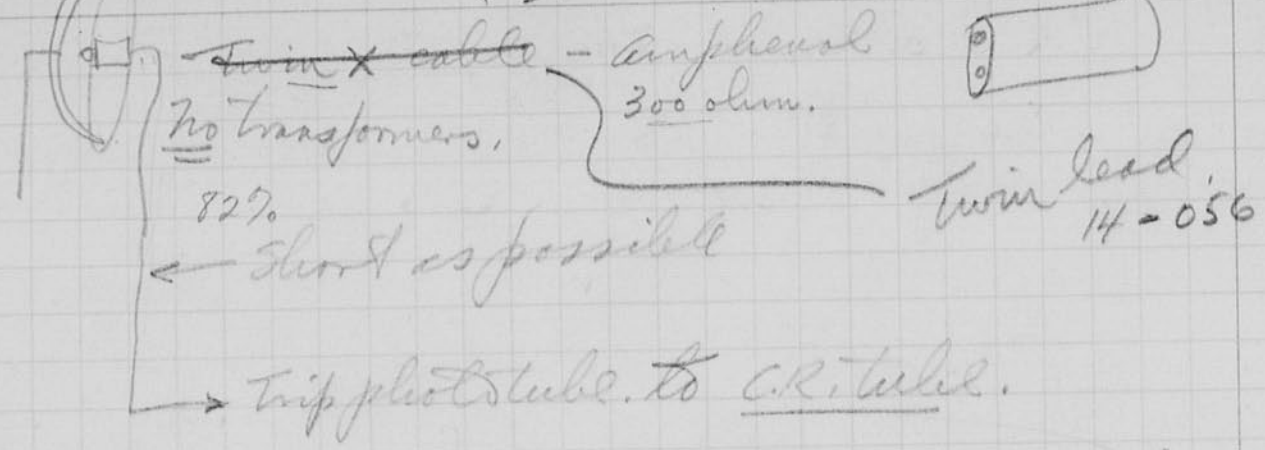 Twin X cable - amphenol
300 ohm.
No transformers.
Twin lead.
14-056
82%
Short as possible
Trip phototube. to C.R. tube.